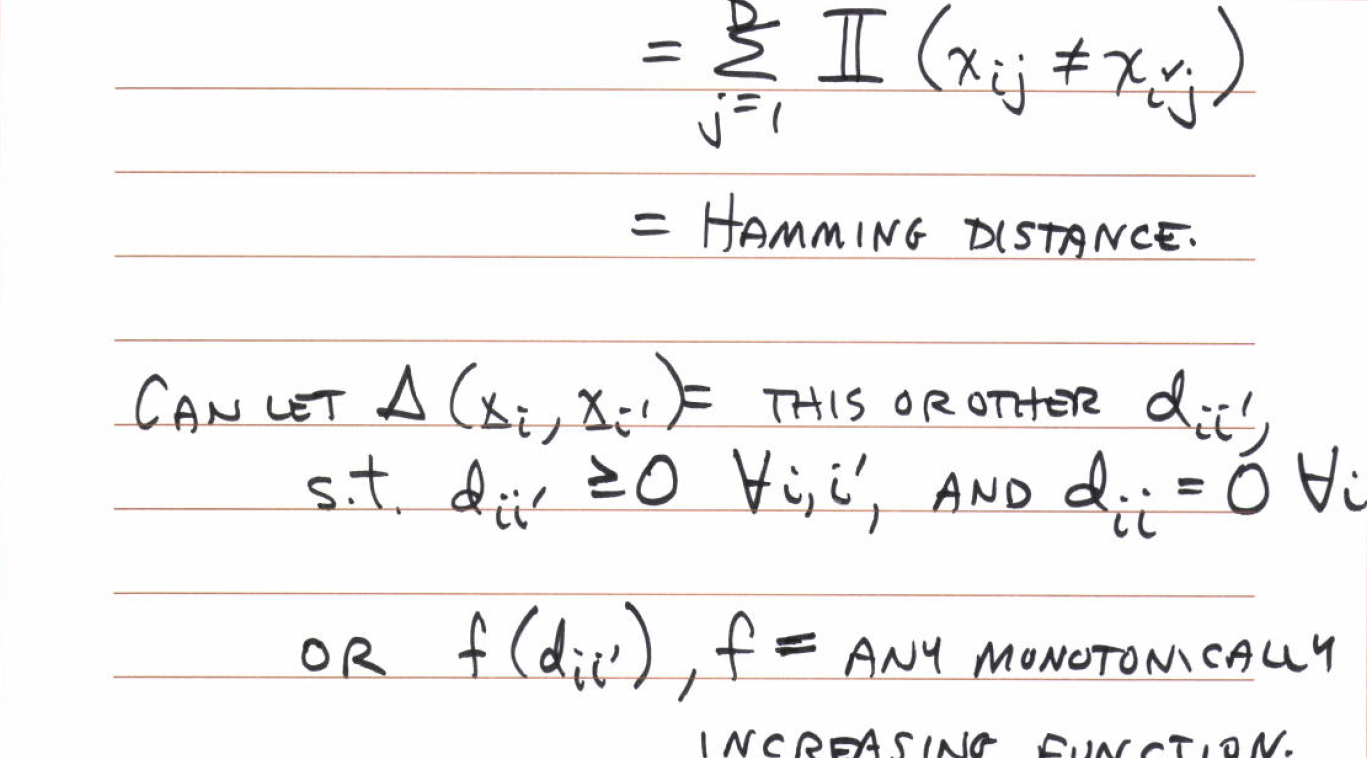 = D Σ j=1 𝕀 (x_ij ≠ x_i'j)
= HAMMING DISTANCE.
CAN LET Δ(x_i, x_i')= THIS OR OTHER d_ii',
s.t. d_ii' ≥0 ∀i,i', AND d_ii = 0 ∀i
OR f(d_ii'), f = ANY MONOTONICALLY
INCREASING FUNCTION.